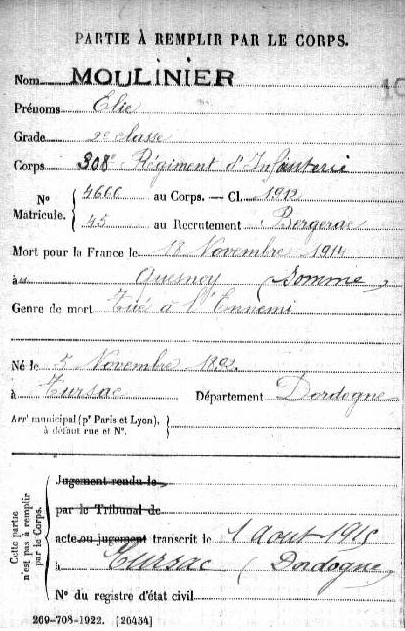 PARTIE À REMPLIR PAR LE CORPS.
Nom MOULINIER
10
Prénoms Elie
Grade 2e classe
Corps 308e Régiment d'Infanterie
N° Matricule. { 4666 au Corps. — Cl. 1912
45 au Recrutement Bergerac
Mort pour la France le 18 Novembre 1914
à Quesnoy (Somme)
Genre de mort Tué à l'Ennemi
Né le 5 Novembre 1892.
à Tursac Département Dordogne
Arrt municipal (pr Paris et Lyon), }
à défaut rue et N°.
Cette partie n'est pas à remplir par le Corps.
Jugement rendu le
par le Tribunal de
acte ou jugement transcrit le 1 Aout 1915
à Tursac (Dordogne)
N° du registre d'état civil
269-708-1922. [26434]